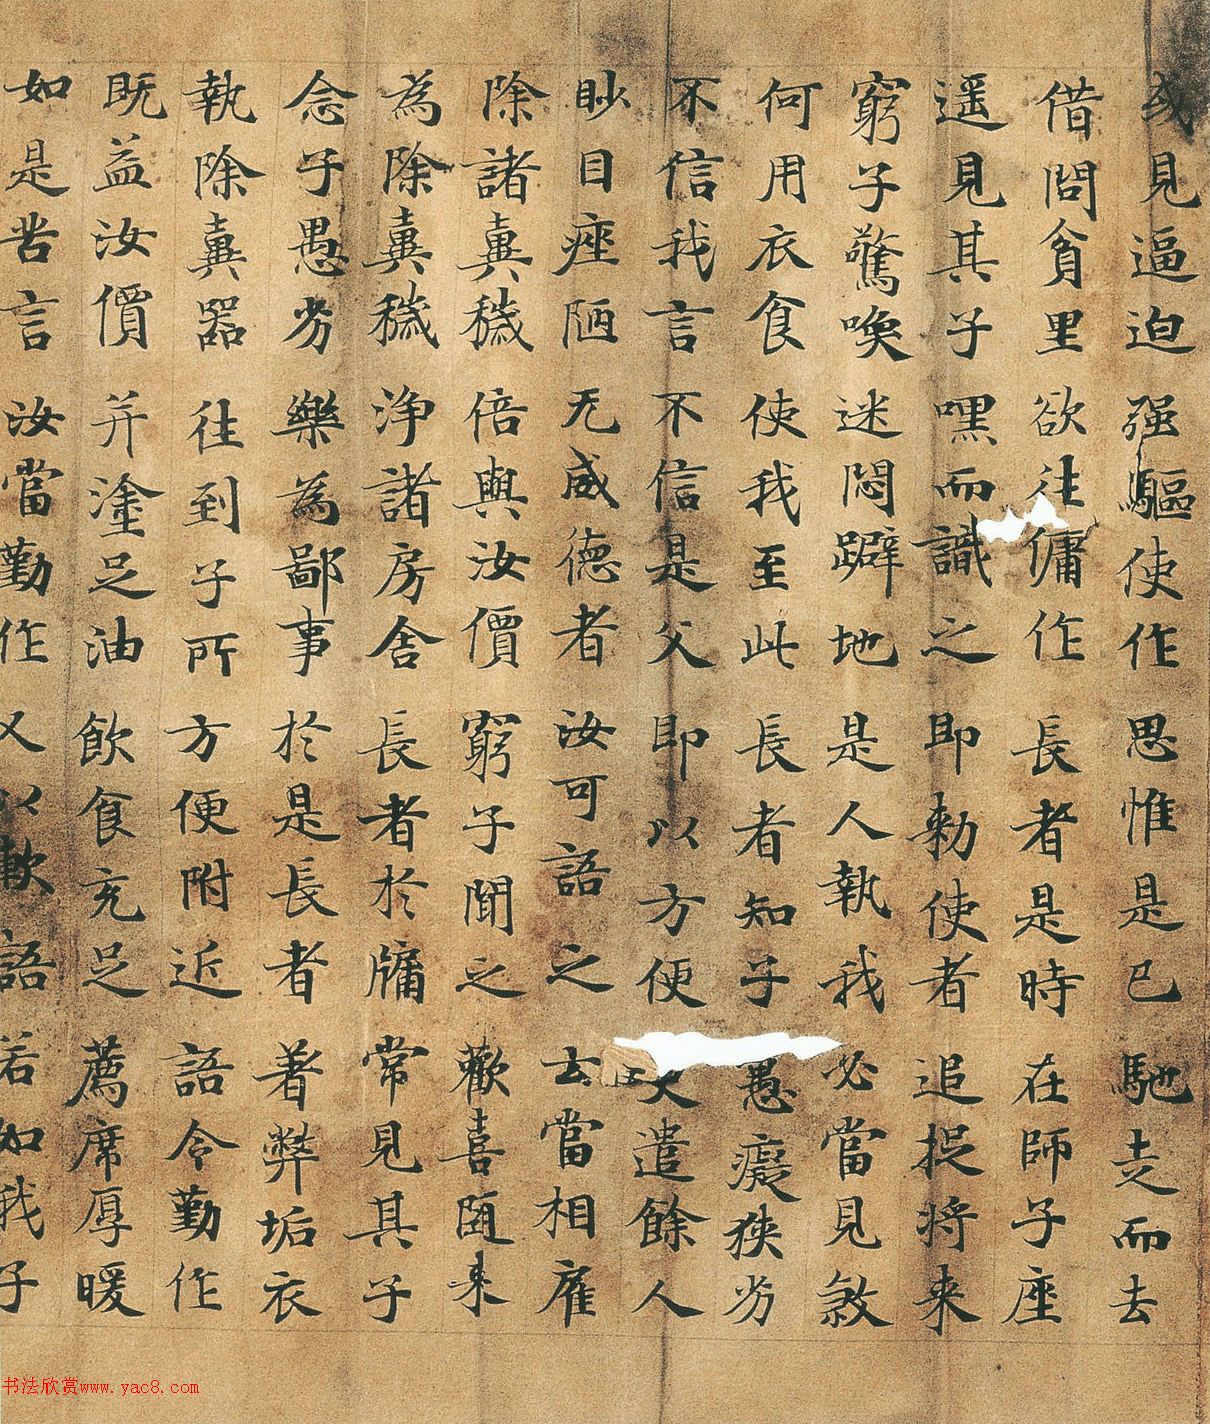 或見逼迫 强驅使作 思惟是已 馳走而去
借問貧里 欲往傭作 長者是時 在師子座
遥見其子 嘿而識之 即勑使者 追捉将来
窮子驚喚 迷悶躃地 是人執我 必當見煞
何用衣食 使我至此 長者知子 愚癡狹劣
不信我言 不信是父 即以方便 更遣餘人
眇目痤陋 无威德者 汝可語之 云當相雇
除諸糞穢 倍與汝價 窮子聞之 歡喜随来
為除糞穢 净諸房舍 長者於牖 常見其子
念子愚劣 樂為鄙事 於是長者 著弊垢衣
執除糞器 往到子所 方便附近 語令勤作
既益汝價 并塗足油 飲食充足 薦席厚暖
如是苦言 汝當勤作 又以軟語 若如我子
书法欣赏www.yac8.com